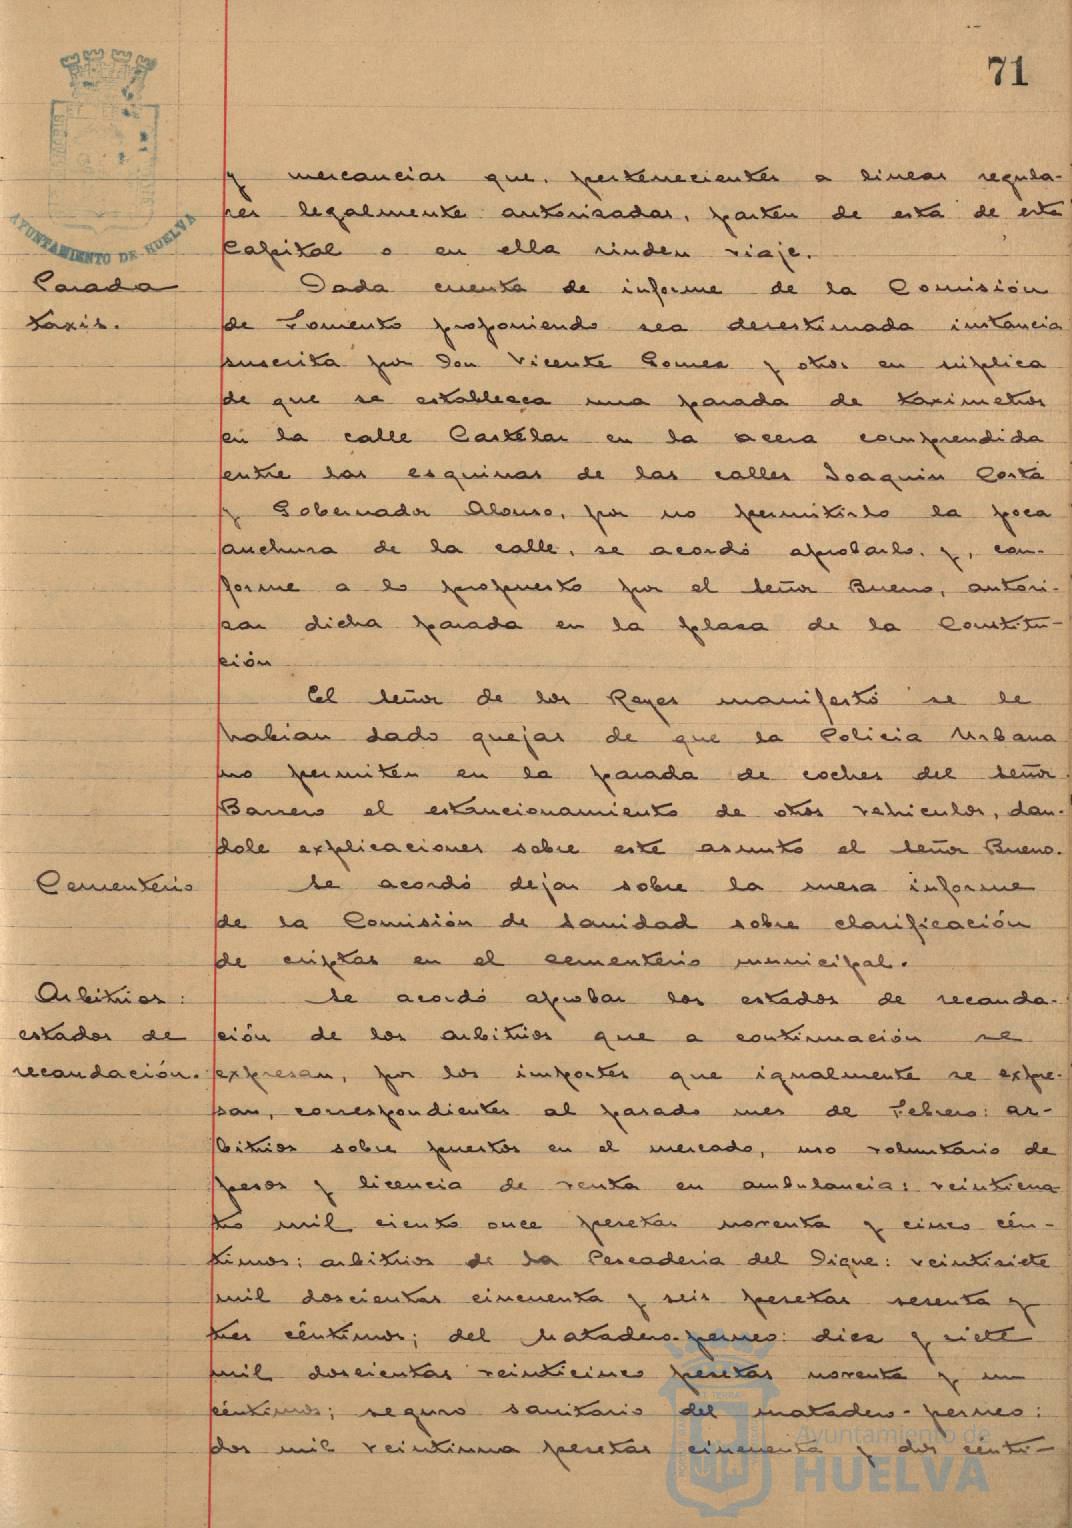 71
AYUNTAMIENTO DE HUELVA
y mercancias que, pertenecientes a lineas regula-
res legalmente autorizadas, parten de esta de esta
Capital o en ella rinden viaje.
Parada
taxis.
Dada cuenta de informe de la Comisión
de Fomento proponiendo sea desestimada instancia
suscrita por Don Vicente Gomez y otros en súplica
de que se establezca una parada de taximetros
en la calle Castelar en la acera comprendida
entre las esquinas de las calles Joaquin Costa
y Gobernador Alonso, por no permitirlo la poca
anchura de la calle, se acordó aprobarlo, y, con-
forme a lo propuesto por el señor Bueno, autori-
zar dicha parada en la plaza de la Constitu-
ción
El señor de los Reyes manifestó se le
habian dado quejas de que la Policia Urbana
no permiten en la parada de coches del señor
Barrero el estancionamiento de otros vehiculos, dan-
dole explicaciones sobre este asunto el señor Bueno.
Cementerio
Se acordó dejar sobre la mesa informe
de la Comisión de Sanidad sobre clarificación
de criptas en el cementerio municipal.
Arbitrios:
estados de
recaudación.
Se acordó aprobar los estados de recauda-
ción de los arbitrios que a continuación se
expresan, por los importes que igualmente se expre-
san, correspondientes al pasado mes de Febrero: ar-
bitrios sobre puestos en el mercado, uso voluntario de
pesos y licencia de venta en ambulancia: veinticua
tro mil ciento once pesetas noventa y cinco cén-
timos; arbitrios de la Pescaderia del Dique: veintisiete
mil doscientas cincuenta y seis pesetas sesenta y
tres céntimos; del Matadero-perneo: diez y siete
mil doscientas veinticinco pesetas noventa y un
céntimos; seguro sanitario del matadero-perneo:
dos mil veintiuna pesetas cincuenta y dos cénti-
Ayuntamiento de
HUELVA